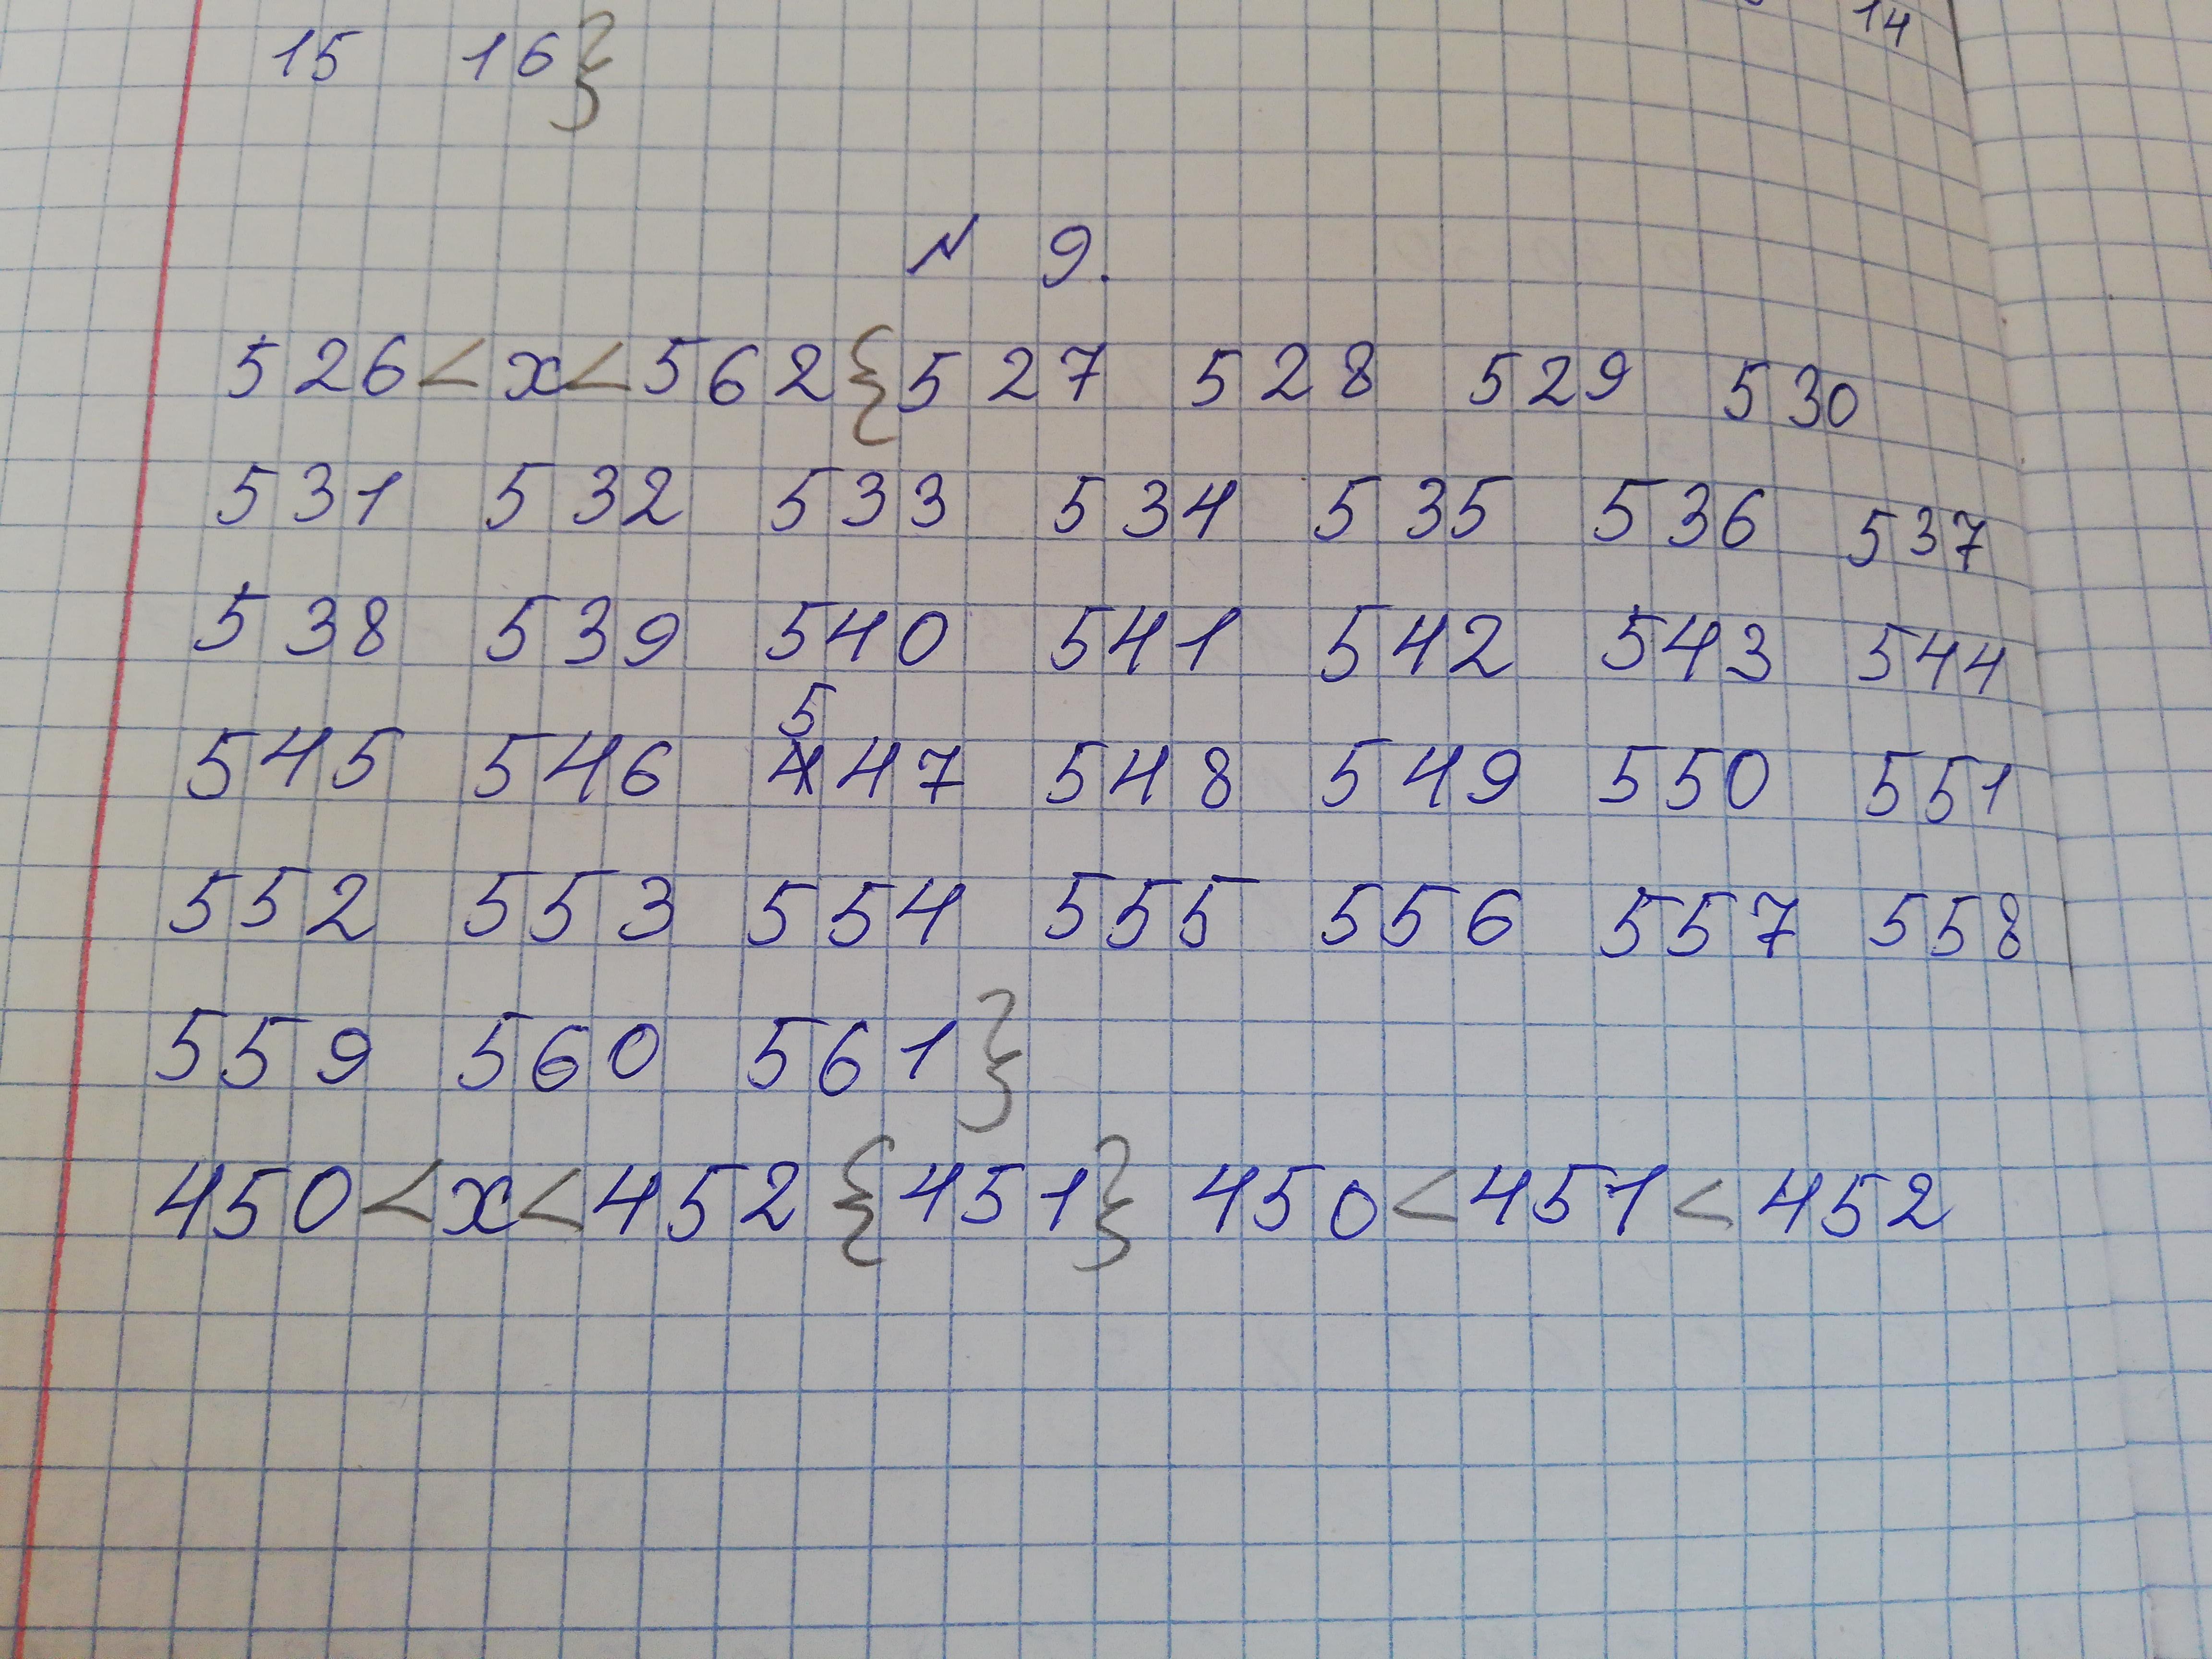 14
15 16}
N 9.
526<x<562{527 528 529 530
531 532 533 534 535 536 537
538 539 540 541 542 543 544
545 546 547 548 549 550 551
552 553 554 555 556 557 558
559 560 561}
450<x<452 {451} 450<451<452